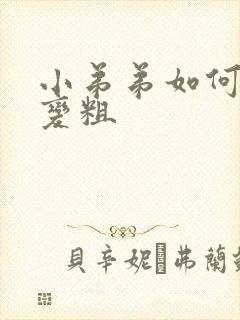 小弟弟如何
變粗
貝辛妮 弗蘭